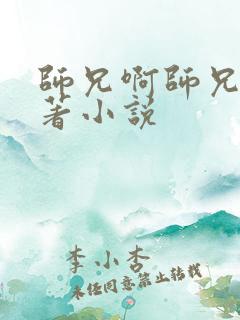 師兄啊師兄
著小説
李小杏
未經同意禁止轉載